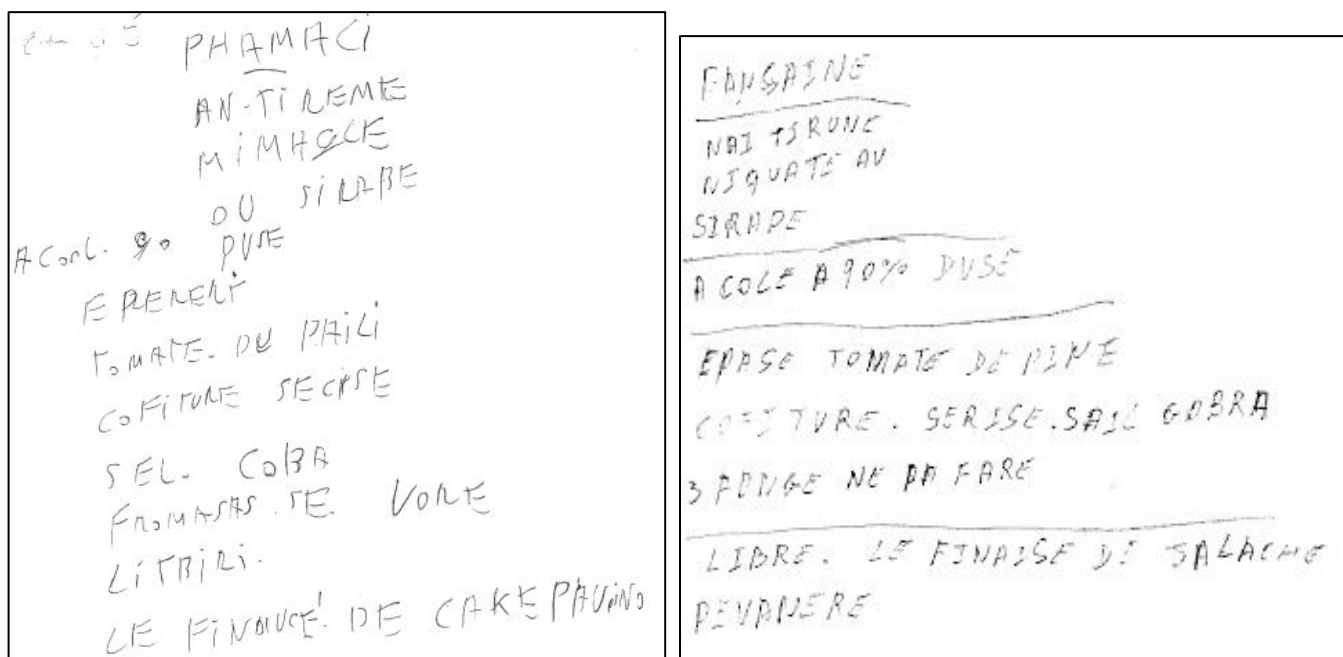 PHAMACI
AN-TIREME
MIMAQLE
OU SIRABE
ACOOL. 90 DUSE
EPERERI
TOMATE. DU PAILI
COFITURE SECISE
SEL. COBA
FROMASAS. SE. VORE
LITRIRI.
LE FINOUCE! DE CAKE
FANSAINE
NAI TSRUNE
NIQUATE AU
SIRAPE
A COLE A 90% DUSE
EPASE TOMATE DE PINE
COFITURE. SERISE. SAIL GOBRA
3 PONGE NE PA FARE
LIBRE. LE FINAISE DE JALACHE
PEVANERE